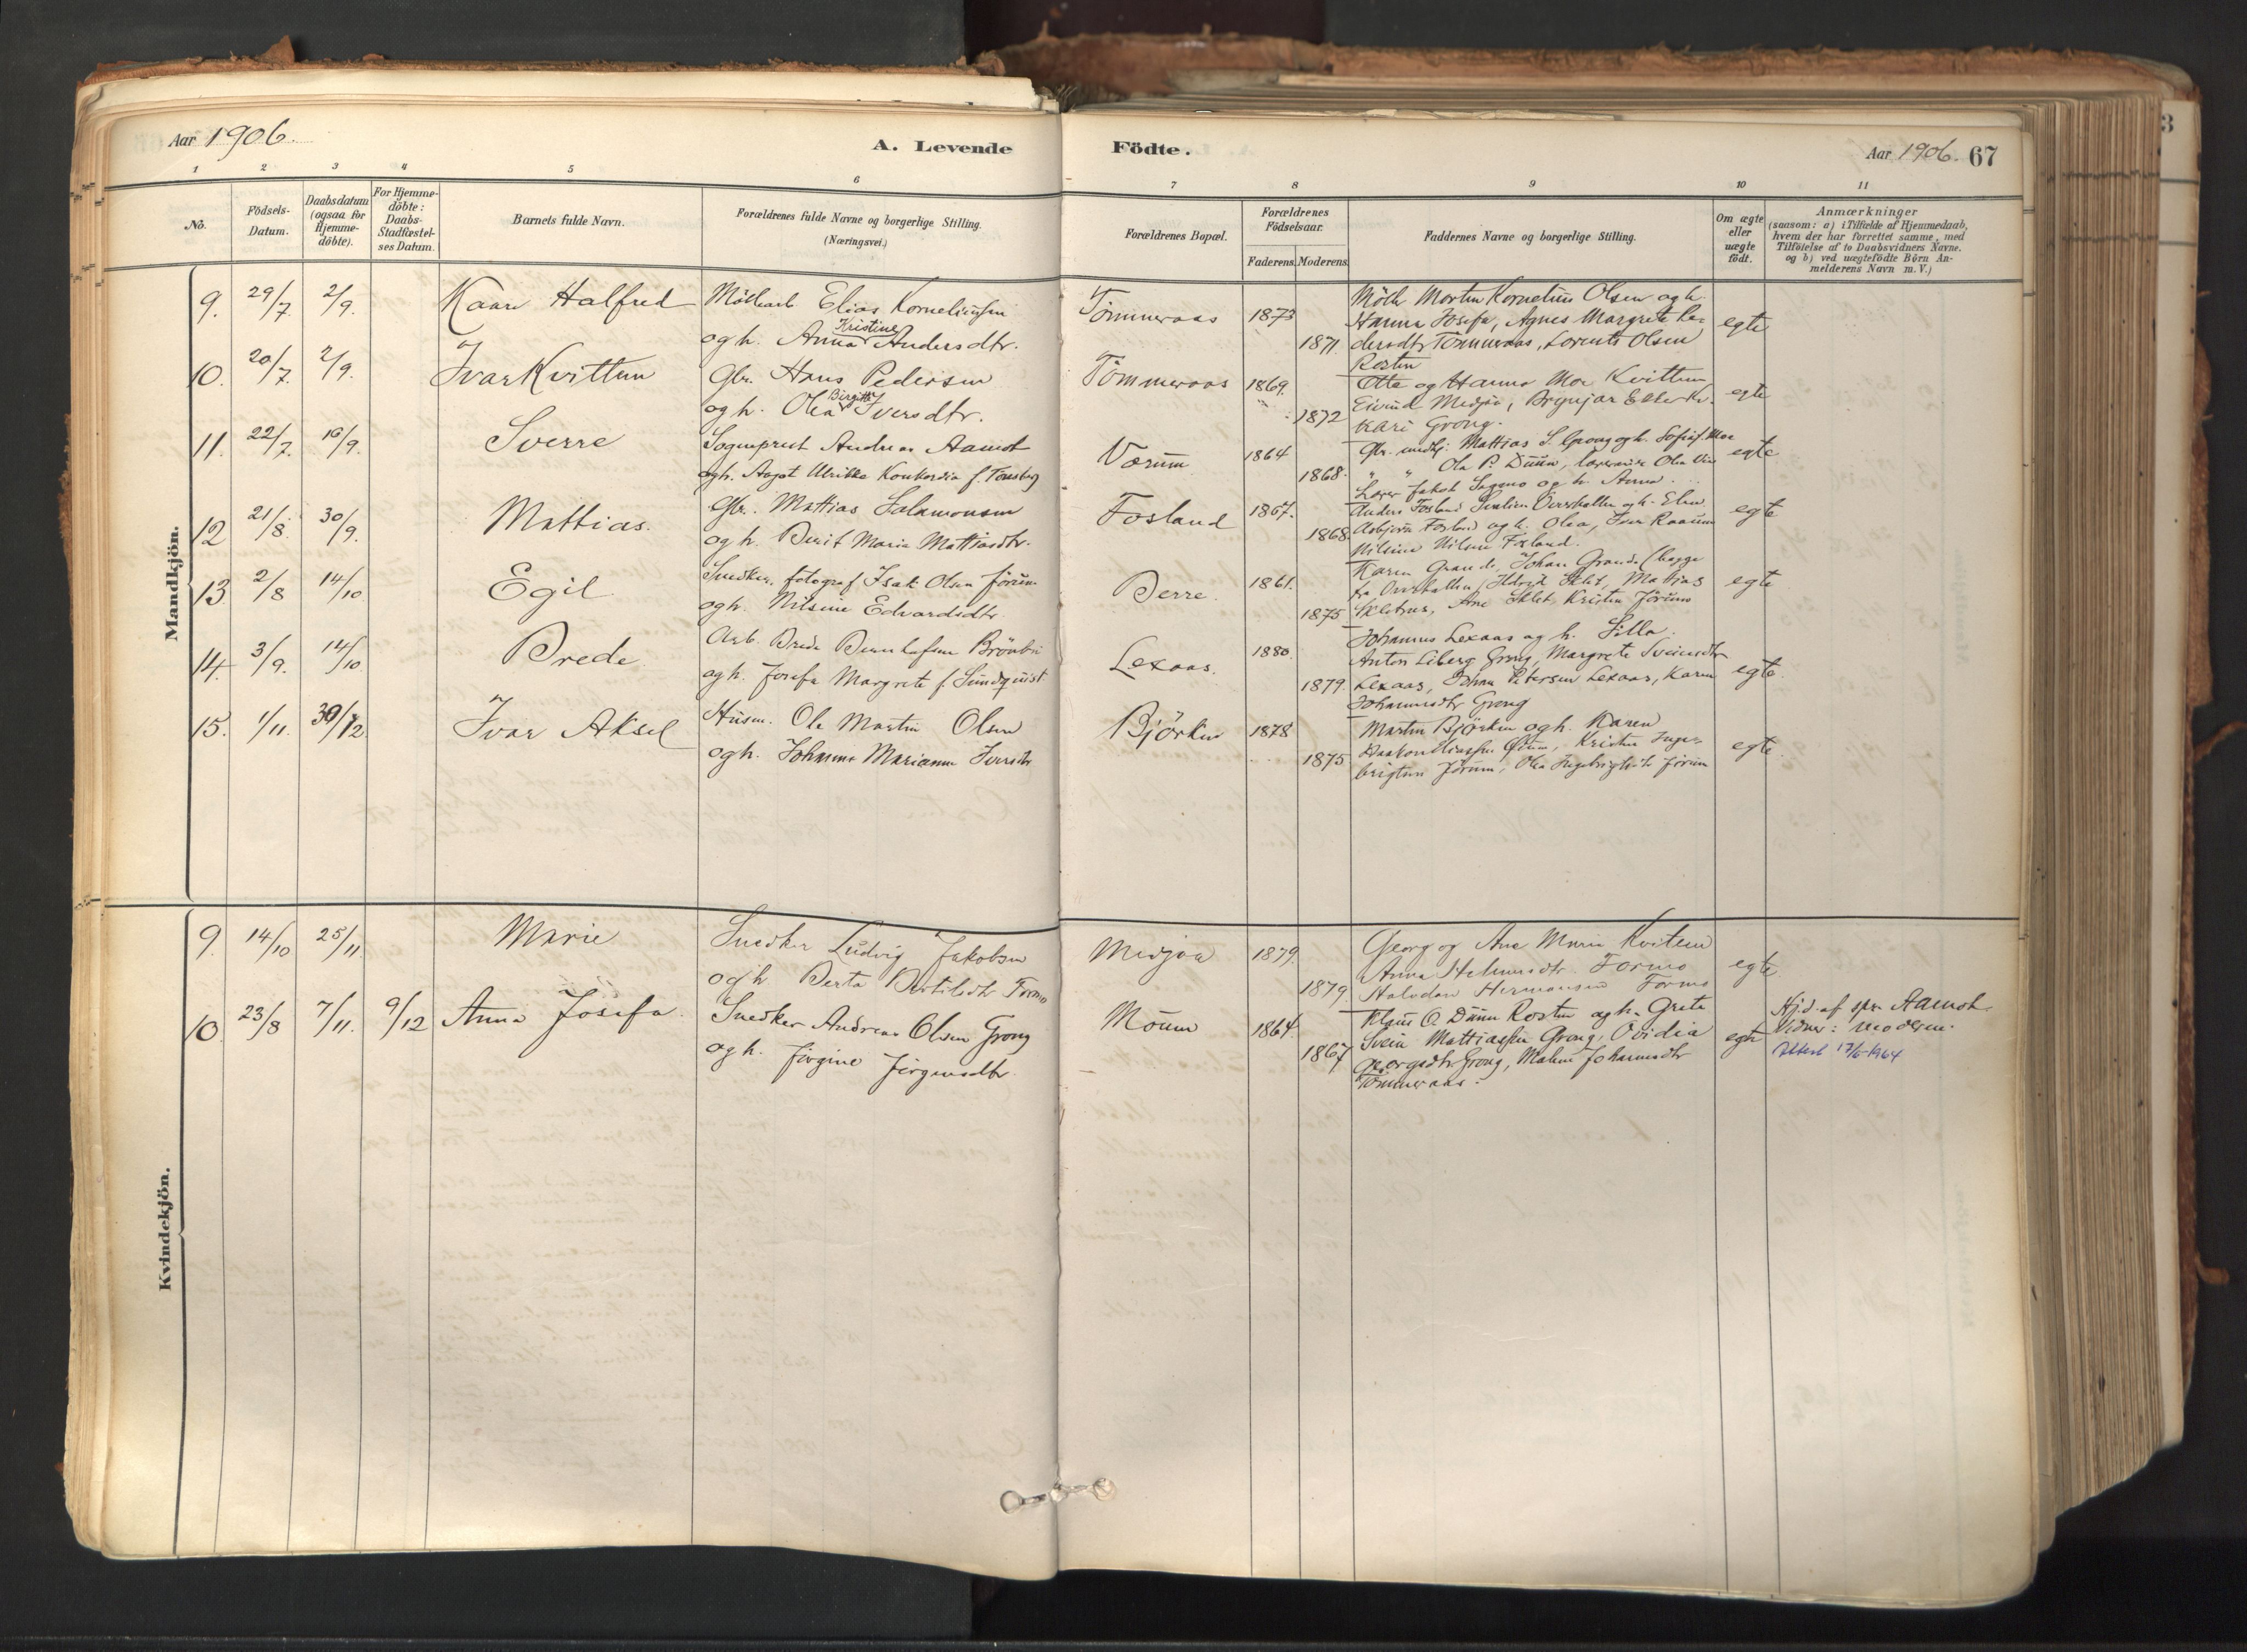 Aar 1906.
A. Levende
Födte.
Aar 1906. 67
1 2 3 4 5 6 7 8 9 10 11
No.
Födsels-
Datum.
Daabsdatum
(ogsaa for
Hjemme-
döbte).
For Hjemme-
döbte:
Daabs-
Stadfæstel-
ses Datum.
Barnets fulde Navn.
Forældrenes fulde Navne og borgerlige Stilling.
(Næringsvei.)
Forældrenes Bopæl.
Forældrenes
Födselsaar.
Faderens. Moderens.
Faddernes Navne og borgerlige Stilling.
Om ægte
eller
uægte
födt.
Anmærkninger
(saasom: a) i Tilfælde af Hjemmedaab,
hvem der har forrettet samme, med
Tilföielse af to Daabsvidners Navne.
og b) ved uægtefödte Börn An-
melderens Navn m. V.)
Mandkjön.
9. 29/7. 2/9. Kaare Halfred
Elias Korneliussen
og h. Anna Kristine Andersdtr.
Tömmeraas 1873 1871.
Morten Kornelius Olsen og h.
Hanna Josefa, Agnes Margrete Pe-
dersdtr Tömmeraas, Lorents Olsen
Rosten
egte
10. 20/7. 2/9. Ivar Kvittem
Gbr. Hans Pedersen
og h. Olea Birgitte Iversdtr.
Tömmeraas 1869. 1872
Otte og Hanna Moe Kvittem
Eivind Medjaa, Brynjar
Kari Grong.
egte
11. 22/7. 16/9. Sverre
Sogneprest Andreas Aamot
og h. Aagot Ulrikke Konkordia f. Tønsberg
Værum 1864 1868.
Gbr. Mattias S. Grong og h.
" " Ola P. Duun, Olea
Lærer Jakob Sagmo og h. Anna.
egte
12 21/8. 30/9. Mattias.
Gbr. Mattias Salamonsen
og h. Berit Maria Mattiasdtr.
Fosland 1867. 1868.
Anders Fosland Overhallen og h. Elen
Asbjørn Fosland og h. Olea, Iver Raaum
Nilsine Fosland.
egte
13 2/8 14/10 Egil
Snedker, fotograf Isak Olsen Jörum
og h. Nilsine Edvardsdtr.
Berre. 1861. 1875
Karen Grande, Johan Grande (begge
fra Overhallen) Sklet, Mattias
Ane Sklet, Kristen Jörum
egte
14. 3/9. 14/10 Brede
Arb. Brede Brönbo
og h. Josefa Margrete f. Sundquist
Lexaas. 1880. 1879.
Johannes Lexaas og h. Silla.
Anton Liberg Grong, Margrete Svensdtr
Lexaas, Johan Petersen Lexaas, Karen
Johannesdtr Grong
egte.
15. 1/11. 30/12 Ivar Aksel
Husm. Ole Martin Olsen
og h. Johanna Marianne Iversdtr
Björken 1878 1875
Martin Björken og h. Karen
Haakon Eliassen Kristen Inge-
brigtsen Jörum, Olea Ingebrigtsdtr Jörum
egte.
Kvindekjön.
9. 14/10 25/11. Marie
Snedker Ludvig Jakobsen
og h. Berta Bertilsdtr Formo
Medjaa 1879. 1879.
Georg og Ane Maria Kvitem
Anna Formo
Halvdan Hermansen Formo
egte
10. 23/8 7/11. 9/12 Anna Josefa.
Snedker Andreas Olsen Grong
og h. Jörgine Jörgensdtr.
Moum 1864. 1867
Klaus O. Duun Rosten og h. Grete
Svein Mattiassen Grong, Ovidia
Georgsdtr Grong, Malene Johannesdtr
Tömmeraas.
egte
Hjd. af spr. Aamot
Vidner: moderen.
Attest 17/6-1964